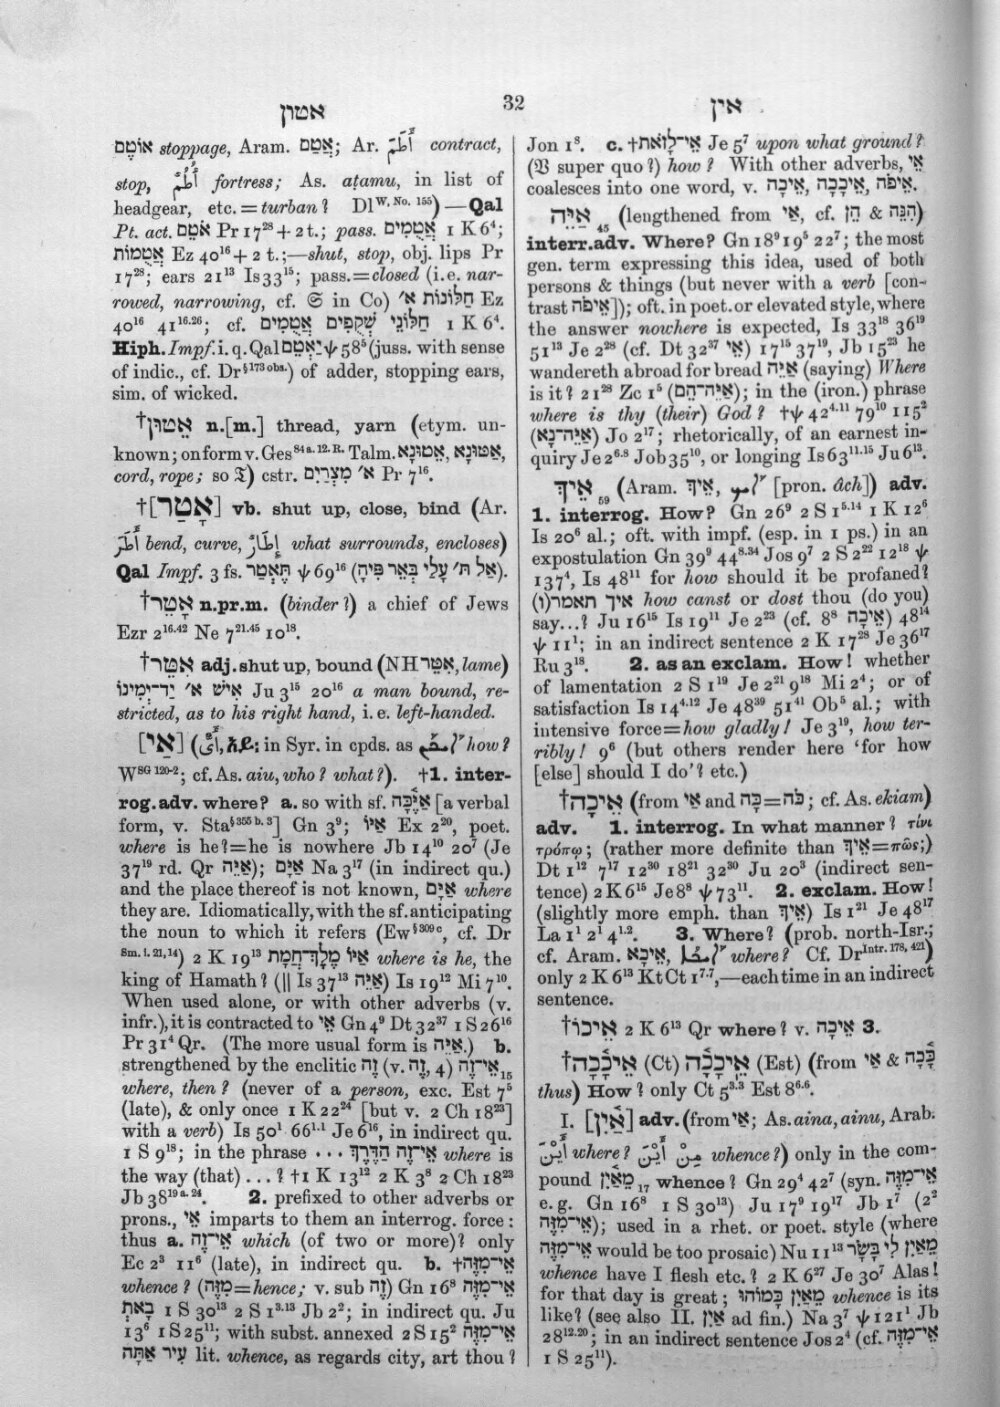 אטון
32
אין
אוֹטֶם stoppage, Aram. אֲטַם; Ar. أَطَمَ contract,
stop, أُطُمٌ fortress; As. aṭamu, in list of
headgear, etc. = turban? Dl W, No. 155) — Qal
Pt. act. אֹטֵם Pr 17²⁸ + 2 t.; pass. אֲטֻמִים 1 K 6⁴;
אֲטֻמוֹת Ez 40¹⁶ + 2 t.;—shut, stop, obj. lips Pr
17²⁸; ears 21¹³ Is 33¹⁵; pass.=closed (i.e. nar-
rowed, narrowing, cf. 𝔖 in Co) חַלּוֹנוֹת א׳ Ez
40¹⁶ 41¹⁶·²⁶; cf. חַלּוֹנֵי שְׁקֻפִים אֲטֻמִים 1 K 6⁴.
Hiph. Impf. i. q. Qal יַאְטֵם ψ 58⁵ (juss. with sense
of indic., cf. Dr §173 obs.) of adder, stopping ears,
sim. of wicked.
†אֵטוּן n.[m.] thread, yarn (etym. un-
known; on form v. Ges §84 a. 12. R. Talm. אֲטוּנָא, אַטּוּנָא,
cord, rope; so 𝔗) cstr. א׳ מִצְרַיִם Pr 7¹⁶.
†[אָטַר] vb. shut up, close, bind (Ar.
أَطَرَ bend, curve, إِطَارٌ what surrounds, encloses)
Qal Impf. 3 fs. תֶּאְטַר ψ 69¹⁶ (אַל תּ׳ עָלַי בְּאֵר פִּיהָ).
†אָטֵר n.pr.m. (binder?) a chief of Jews
Ezr 2¹⁶·⁴² Ne 7²¹·⁴⁵ 10¹⁸.
†אִטֵּר adj. shut up, bound (NH אִטֵּר, lame)
אִישׁ א׳ יַד־יְמִינוֹ Ju 3¹⁵ 20¹⁶ a man bound, re-
stricted, as to his right hand, i. e. left-handed.
[אַי] (أَيٌّ, አይ: in Syr. in cpds. as how?
W SG 120-2; cf. As. aiu, who? what?). †1. inter-
rog. adv. where? a. so with sf. אַיֶּכָּה [a verbal
form, v. Sta §355 b. 3] Gn 3⁹; אַיּוֹ Ex 2²⁰, poet.
where is he?=he is nowhere Jb 14¹⁰ 20⁷ (Je
37¹⁹ rd. Qr אַיֵּה); אַיָּם Na 3¹⁷ (in indirect qu.)
and the place thereof is not known, אַיָּם where
they are. Idiomatically, with the sf. anticipating
the noun to which it refers (Ew §309 c, cf. Dr
Sm. i. 21, 14) 2 K 19¹³ אַיּוֹ מֶלֶךְ־חֲמָת where is he, the
king of Hamath? (|| Is 37¹³ אַיֵּה) Is 19¹² Mi 7¹⁰.
When used alone, or with other adverbs (v.
infr.), it is contracted to אֵי Gn 4⁹ Dt 32³⁷ 1 S 26¹⁶
Pr 31⁴ Qr. (The more usual form is אַיֵּה.) b.
strengthened by the enclitic זֶה (v. זֶה, 4) אֵי־זֶה 15
where, then? (never of a person, exc. Est 7⁵
(late), & only once 1 K 22²⁴ [but v. 2 Ch 18²³]
with a verb) Is 50¹ 66¹·¹ Je 6¹⁶, in indirect qu.
1 S 9¹⁸; in the phrase ... אֵי־זֶה הַדֶּרֶךְ where is
the way (that) ...? †1 K 13¹² 2 K 3⁸ 2 Ch 18²³
Jb 38¹⁹ᵃ·²⁴. 2. prefixed to other adverbs or
prons., אֵי imparts to them an interrog. force:
thus a. אֵי־זֶה which (of two or more)? only
Ec 2³ 11⁶ (late), in indirect qu. b. †אֵי־מִזֶּה
whence? (מִזֶּה=hence; v. sub זֶה) Gn 16⁸ אֵי־מִזֶּה
בָאת 1 S 30¹³ 2 S 1³·¹³ Jb 2²; in indirect qu. Ju
13⁶ 1 S 25¹¹; with subst. annexed 2 S 15² אֵי־מִזֶּה
עִיר אַתָּה lit. whence, as regards city, art thou?
Jon 1⁸. c. †אֵי־לָזֹאת Je 5⁷ upon what ground?
(𝔙 super quo?) how? With other adverbs, אֵי
coalesces into one word, v. אֵיכָה, אֵיכָכָה, אֵיפֹה.
אַיֵּה 45 (lengthened from אַי, cf. הֵן & הִנֵּה)
interr.adv. Where? Gn 18⁹ 19⁵ 22⁷; the most
gen. term expressing this idea, used of both
persons & things (but never with a verb [con-
trast אֵיפֹה]); oft. in poet. or elevated style, where
the answer nowhere is expected, Is 33¹⁸ 36¹⁹
51¹³ Je 2²⁸ (cf. Dt 32³⁷ אֵי) 17¹⁵ 37¹⁹, Jb 15²³ he
wandereth abroad for bread אַיֵּה (saying) Where
is it? 21²⁸ Zc 1⁵ (אַיֵּה־הֵם); in the (iron.) phrase
where is thy (their) God? †ψ 42⁴·¹¹ 79¹⁰ 115²
(אַיֵּה־נָא) Jo 2¹⁷; rhetorically, of an earnest in-
quiry Je 2⁶·⁸ Job 35¹⁰, or longing Is 63¹¹·¹⁵ Ju 6¹³.
אֵיךְ 59 (Aram. אֵיךְ, [pron. âch]) adv.
1. interrog. How? Gn 26⁹ 2 S 1⁵·¹⁴ 1 K 12⁶
Is 20⁶ al.; oft. with impf. (esp. in 1 ps.) in an
expostulation Gn 39⁹ 44⁸·³⁴ Jos 9⁷ 2 S 2²² 12¹⁸ ψ
137⁴, Is 48¹¹ for how should it be profaned?
איך תאמר(ו) how canst or dost thou (do you)
say...? Ju 16¹⁵ Is 19¹¹ Je 2²³ (cf. 8⁸ אֵיכָה) 48¹⁴
ψ 11¹; in an indirect sentence 2 K 17²⁸ Je 36¹⁷
Ru 3¹⁸. 2. as an exclam. How! whether
of lamentation 2 S 1¹⁹ Je 2²¹ 9¹⁸ Mi 2⁴; or of
satisfaction Is 14⁴·¹² Je 48³⁹ 51⁴¹ Ob⁵ al.; with
intensive force=how gladly! Je 3¹⁹, how ter-
ribly! 9⁶ (but others render here 'for how
[else] should I do'? etc.)
†אֵיכָה (from אֵי and כָּה=כֹּה; cf. As. ekiam)
adv. 1. interrog. In what manner? τίνι
τρόπῳ; (rather more definite than אֵיךְ=πῶς;)
Dt 1¹² 7¹⁷ 12³⁰ 18²¹ 32³⁰ Ju 20³ (indirect sen-
tence) 2 K 6¹⁵ Je 8⁸ ψ 73¹¹. 2. exclam. How!
(slightly more emph. than אֵיךְ) Is 1²¹ Je 48¹⁷
La 1¹ 2¹ 4¹·². 3. Where? (prob. north-Isr.;
cf. Aram. אֵיכָא, where? Cf. Dr Intr. 178, 421)
only 2 K 6¹³ Kt Ct 1⁷·⁷,—each time in an indirect
sentence.
†אֵיכוֹ 2 K 6¹³ Qr where? v. אֵיכָה 3.
†אֵיכָכָה (Ct) אֵיכָכָה (Est) (from אֵי & כָּכָה
thus) How? only Ct 5³·³ Est 8⁶·⁶.
I. [אַיִן] adv. (from אַי; As. aina, ainu, Arab.
أَيْنَ where? مِنْ أَيْنَ whence?) only in the com-
pound מֵאַיִן 17 whence? Gn 29⁴ 42⁷ (syn. אֵי־מִזֶּה
e. g. Gn 16⁸ 1 S 30¹³) Ju 17⁹ 19¹⁷ Jb 1⁷ (2²
אֵי־מִזֶּה); used in a rhet. or poet. style (where
אֵי־מִזֶּה would be too prosaic) Nu 11¹³ מֵאַיִן לִי בָּשָׂר
whence have I flesh etc.? 2 K 6²⁷ Je 30⁷ Alas!
for that day is great; מֵאַיִן כָּמוֹהוּ whence is its
like? (see also II. אַיִן ad fin.) Na 3⁷ ψ 121¹ Jb
28¹²·²⁰; in an indirect sentence Jos 2⁴ (cf. אֵי־מִזֶּה
1 S 25¹¹).